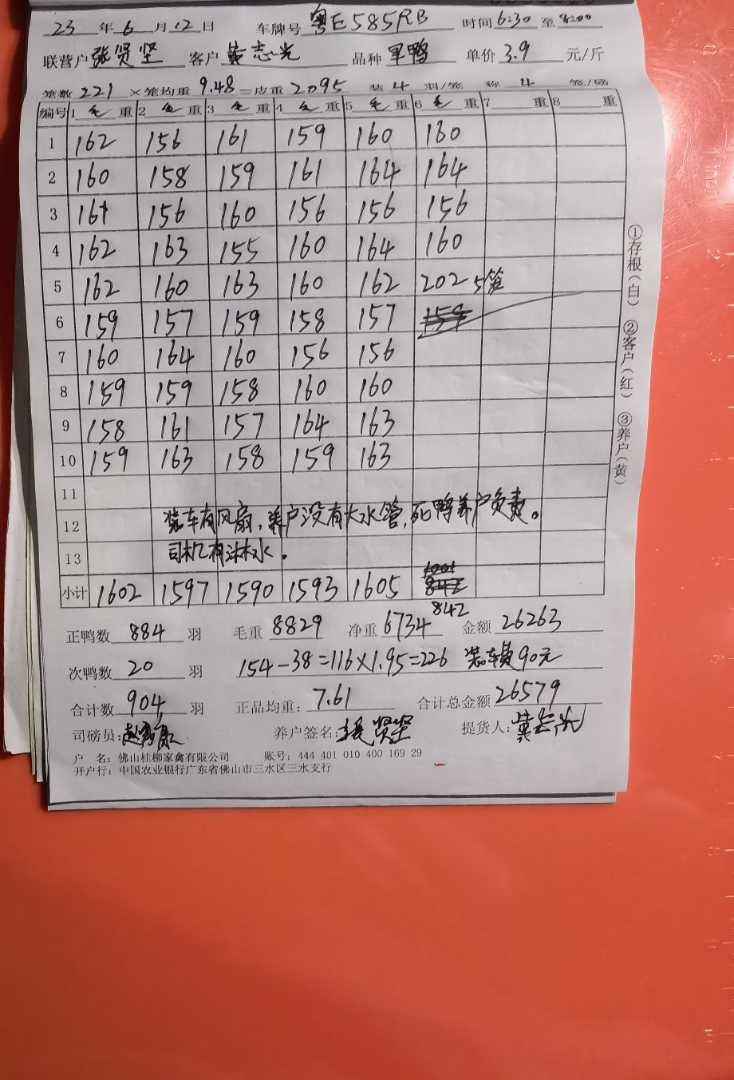 23 年 6 月 12 日 车牌号 粤E585RB 时间 6:30 至 8:00
联营户 张贤坚 客户 黄志光 品种 军鸭 单价 3.9 元/斤
笼数 221 ×笼均重 9.48 =皮重 2095 装 4 羽/笼 称 4 笼/磅
编号 1 毛 重 2 毛 重 3 毛 重 4 毛 重 5 毛 重 6 毛 重 7 重 8 重
1 162 156 161 159 160 160
2 160 158 159 161 164 164
3 161 156 160 156 156 156
4 162 163 155 160 164 160
5 162 160 163 160 162 202 5笼
6 159 157 159 158 157 159
7 160 164 160 156 156
8 159 159 158 160 160
9 158 161 157 164 163
10 159 163 158 159 163
11
12 装车有风扇,养户没有大水管,死鸭养户负责。
13 司机有淋水。
小计 1602 1597 1590 1593 1605 842
842
正鸭数 884 羽 毛重 8829 净重 6734 金额 26263
次鸭数 20 羽 154-38=116×1.95=226 装车费90元
合计数 904 羽 正品均重: 7.61 合计总金额 26579
司磅员: 养户签名: 张贤坚 提货人: 黄志光
户 名: 佛山桂柳家禽有限公司 账号: 444 401 010 400 169 29
开户行: 中国农业银行广东省佛山市三水区三水支行
①存根(白) ②客户(红) ③养户(黄)